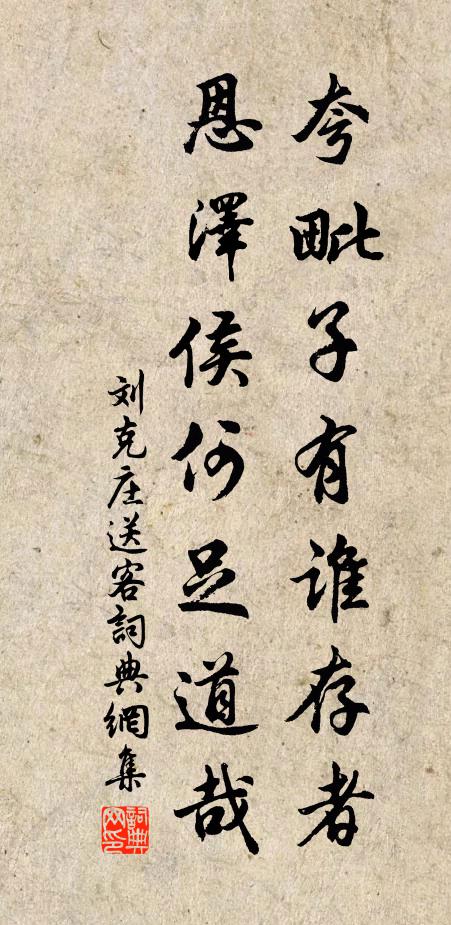 夸毗子有谁存者
恩澤侯何足道哉
刘克庄送客詞典網集
詞典网印